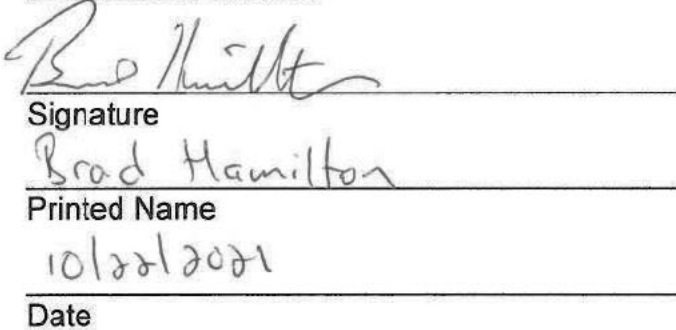 Brad Hamilton
Signature
Brad Hamilton
Printed Name
10/22/2021
Date